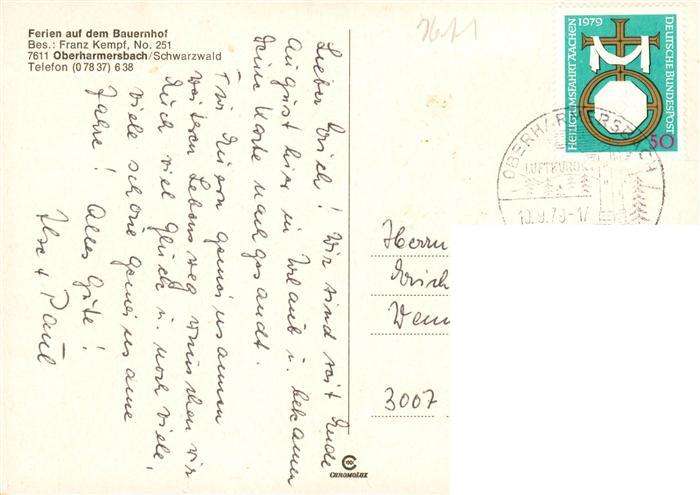 Ferien auf dem Bauernhof
Bes.: Franz Kempf, No. 251
7611 Oberharmersbach/Schwarzwald
Telefon (0 78 37) 6 38
Lieber Erich! Wir sind seit Ende
August hier in Urlaub u. bekamen
Deine Karte nachgesandt.
Für Euren gemeinsamen
weiteren Lebensweg wünschen wir
Euch viel Glück u. noch viele,
viele schöne gemeinsame
Jahre! Alles Gute!
Ilse + Paul
7611
HEILIGTUMSFAHRT AACHEN 1979
DEUTSCHE BUNDESPOST
50
OBERHARMERSBACH
LUFTKURORT
10.9.79-17
Herrn
Erich
3007
CHROMOLUX